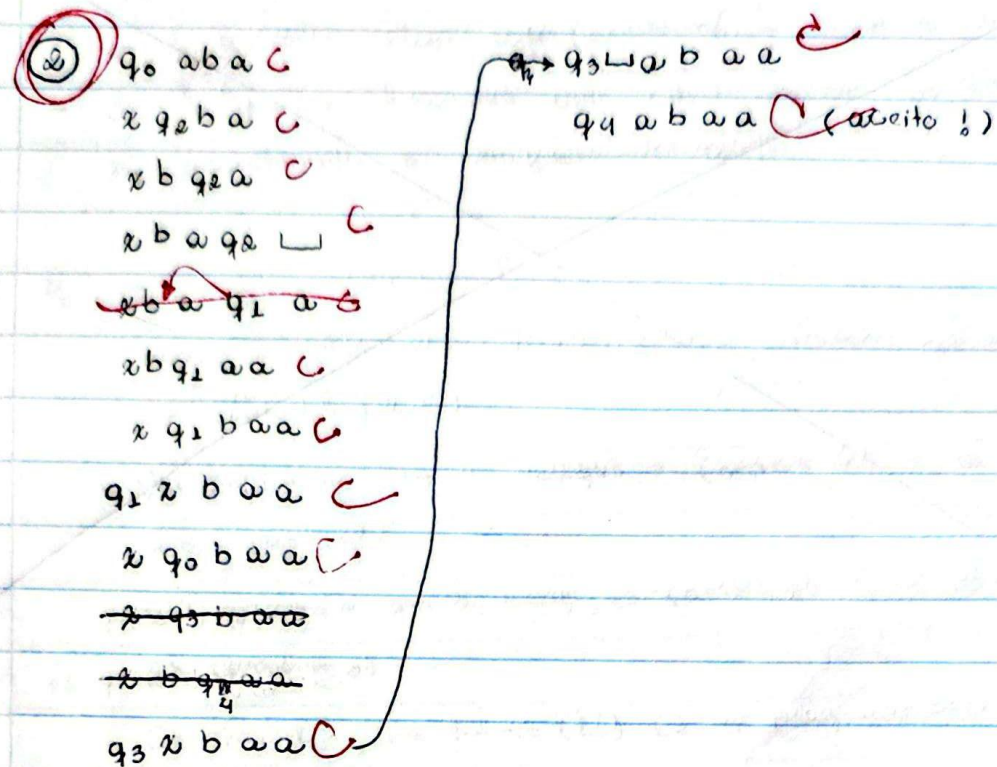 2 q0 aba C
x q2 b a C
x b q2 a C
x b a q2 ⊔ C
x b a q1 a C
x b q1 a a C
x q1 b a a C
q1 x b a a C
x q0 b a a C
x q3 b a a
x b q4 a a
q3 x b a a C
q3 ⊔ a b a a C
q4 a b a a C (aceito !)